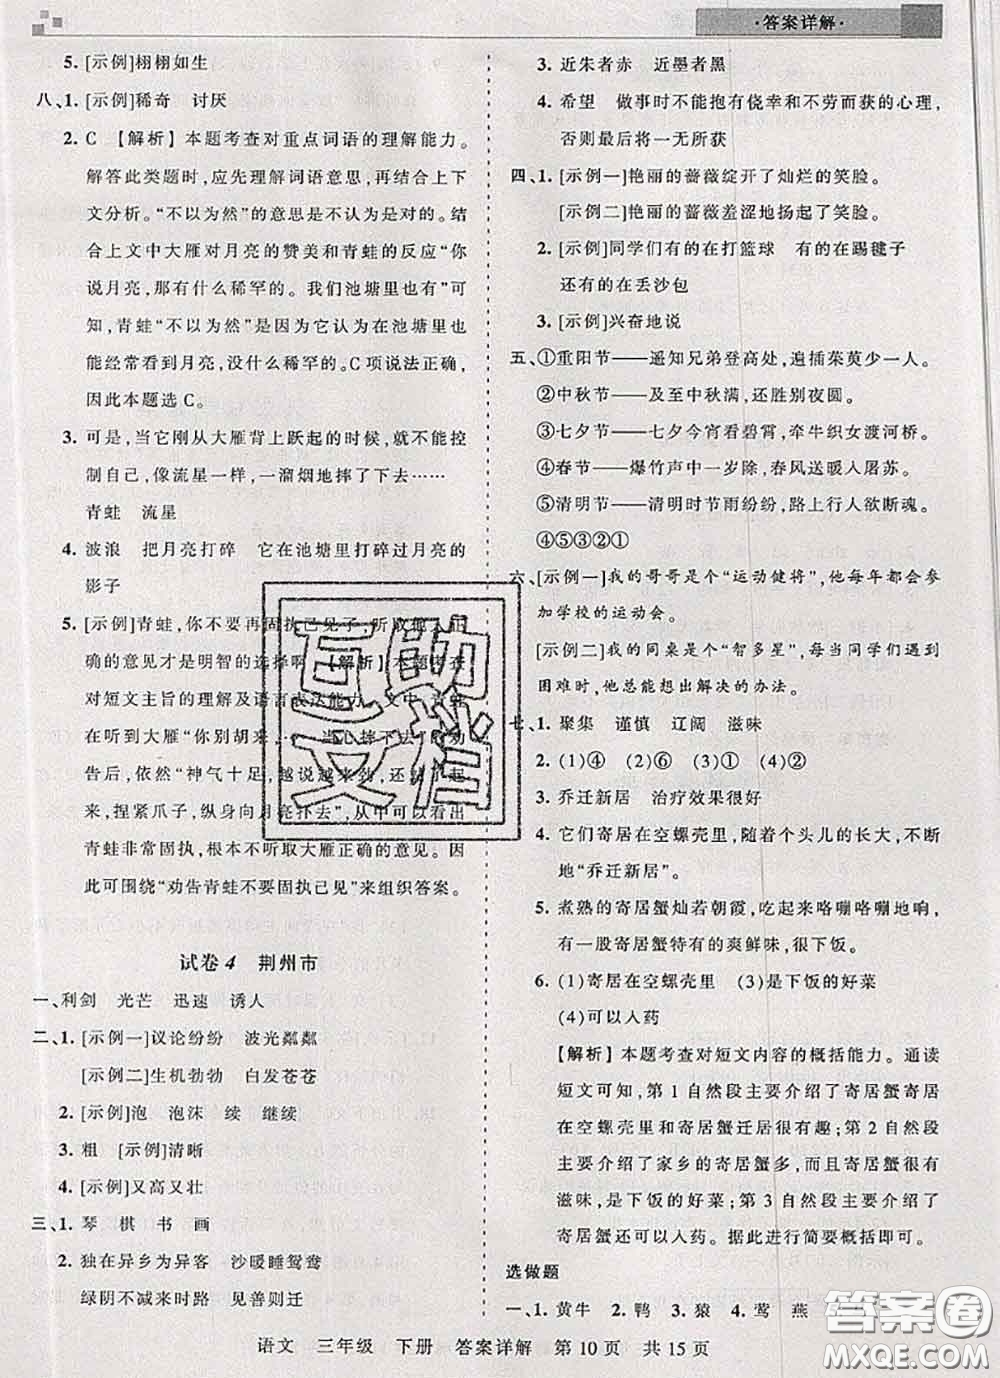 ·答案详解·
5. [示例]栩栩如生
八、1. [示例]稀奇　讨厌
2. C　【解析】本题考查对重点词语的理解能力。
解答此类题时,应先理解词语意思,再结合上下
文分析。“不以为然”的意思是不认为是对的。结
合上文中大雁对月亮的赞美和青蛙的反应“你
说月亮,那有什么稀罕的。我们池塘里也有”可
知,青蛙“不以为然”是因为它认为在池塘里也
能经常看到月亮,没什么稀罕的。C项说法正确,
因此本题选C。
3. 可是,当它刚从大雁背上跃起的时候,就不能控
制自己,像流星一样,一溜烟地摔了下去……
青蛙　流星
4. 波浪　把月亮打碎　它在池塘里打碎过月亮的
影子
5. [示例]青蛙,你不要再固执己见了,听取他人正
确的意见才是明智的选择啊。【解析】本题考查
对短文主旨的理解及语言表达能力。文中,青蛙
在听到大雁“你别胡来,…　当心摔下去”的劝
告后,依然“神气十足,越说越来劲,还站了起
来,捏紧爪子,纵身向月亮扑去”,从中可以看出
青蛙非常固执,根本不听取大雁正确的意见。因
此可围绕“劝告青蛙不要固执己见”来组织答案。
试卷4　荆州市
一、利剑　光芒　迅速　诱人
二、1. [示例一]议论纷纷　波光粼粼
[示例二]生机勃勃　白发苍苍
2. [示例]泡　泡沫　续　继续
3. 粗　[示例]清晰
4. [示例]又高又壮
三、1. 琴　棋　书　画
2. 独在异乡为异客　沙暖睡鸳鸯
绿阴不减来时路　见善则迁
3. 近朱者赤　近墨者黑
4. 希望　做事时不能抱有侥幸和不劳而获的心理,
否则最后将一无所获
四、1. [示例一]艳丽的蔷薇绽开了灿烂的笑脸。
[示例二]艳丽的蔷薇羞涩地扬起了笑脸。
2. [示例]同学们有的在打篮球　有的在踢毽子
还有的在丢沙包
3. [示例]兴奋地说
五、①重阳节——遥知兄弟登高处,遍插茱萸少一人。
②中秋节——及至中秋满,还胜别夜圆。
③七夕节——七夕今宵看碧霄,牵牛织女渡河桥。
④春节——爆竹声中一岁除,春风送暖入屠苏。
⑤清明节——清明时节雨纷纷,路上行人欲断魂。
④⑤③②①
六、[示例一]我的哥哥是个“运动健将”,他每年都会参
加学校的运动会。
[示例二]我的同桌是个“智多星”,每当同学们遇到
困难时,他总能想出解决的办法。
七、1. 聚集　谨慎　辽阔　滋味
2. (1)④　(2)⑥　(3)①　(4)②
3. 乔迁新居　治疗效果很好
4. 它们寄居在空螺壳里,随着个头儿的长大,不断
地“乔迁新居”。
5. 煮熟的寄居蟹灿若朝霞,吃起来咯嘣咯嘣地响,
有一股寄居蟹特有的爽鲜味,很下饭。
6. (1)寄居在空螺壳里　(3)是下饭的好菜
(4)可以入药
【解析】本题考查对短文内容的概括能力。通读
短文可知,第1自然段主要介绍了寄居蟹寄居
在空螺壳里和寄居蟹迁居很有趣;第2自然段
主要介绍了家乡的寄居蟹多,而且寄居蟹很有
滋味,是下饭的好菜;第3自然段主要介绍了
寄居蟹还可以入药。据此进行简要概括即可。
选做题
一、1. 黄牛　2. 鸭　3. 猿　4. 莺　燕
语文　三年级　下册　答案详解　第10页　共15页
互助
文档
答案圈
MXQE.COM